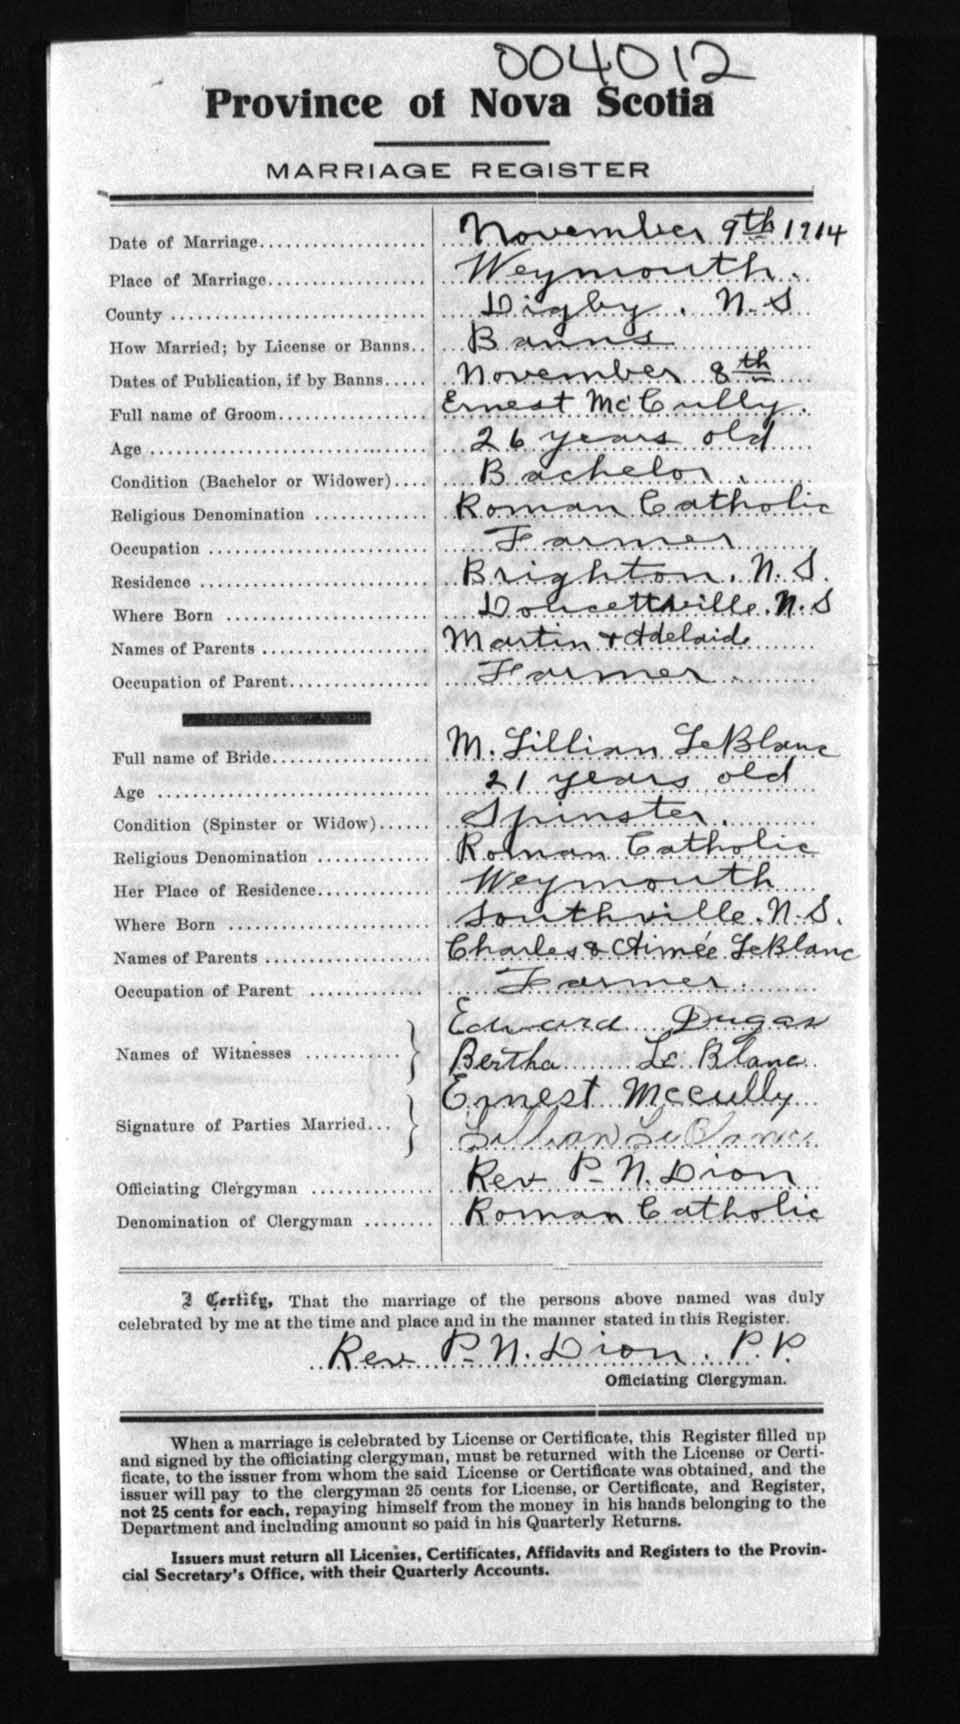 004012
Province of Nova Scotia
MARRIAGE REGISTER
Date of Marriage.................... November 9th 1914
Place of Marriage.................... Weymouth.
County .................... Digby. N.S
How Married; by License or Banns.. Banns
Dates of Publication, if by Banns..... November 8th
Full name of Groom.................... Ernest McCully.
Age .................... 26 years old
Condition (Bachelor or Widower).... Bachelor.
Religious Denomination .................... Roman Catholic
Occupation .................... Farmer
Residence .................... Brighton. N. S.
Where Born .................... Doucettville. N. S
Names of Parents .................... Martin & Adelaide
Occupation of Parent.................... Farmer.
Full name of Bride.................... M. Lillian LeBlanc
Age .................... 21 years old
Condition (Spinster or Widow)...... Spinster.
Religious Denomination .................... Roman Catholic
Her Place of Residence.................... Weymouth
Where Born .................... Southville. N. S.
Names of Parents .................... Charles & Aimée LeBlanc
Occupation of Parent .................... Farmer.
Names of Witnesses ........... } Edward Dugas
Bertha Le Blanc
Signature of Parties Married... } Ernest Mccully
Lillian LeBlanc
Officiating Clergyman .............. Rev P. N. Dion
Denomination of Clergyman ........ Roman Catholic
I Certify, That the marriage of the persons above named was duly
celebrated by me at the time and place and in the manner stated in this Register.
Rev P. N. Dion. P.P.
Officiating Clergyman.
When a marriage is celebrated by License or Certificate, this Register filled up
and signed by the officiating clergyman, must be returned with the License or Certi-
ficate, to the issuer from whom the said License or Certificate was obtained, and the
issuer will pay to the clergyman 25 cents for License, or Certificate, and Register,
not 25 cents for each, repaying himself from the money in his hands belonging to the
Department and including amount so paid in his Quarterly Returns.
Issuers must return all Licenses, Certificates, Affidavits and Registers to the Provin-
cial Secretary's Office, with their Quarterly Accounts.